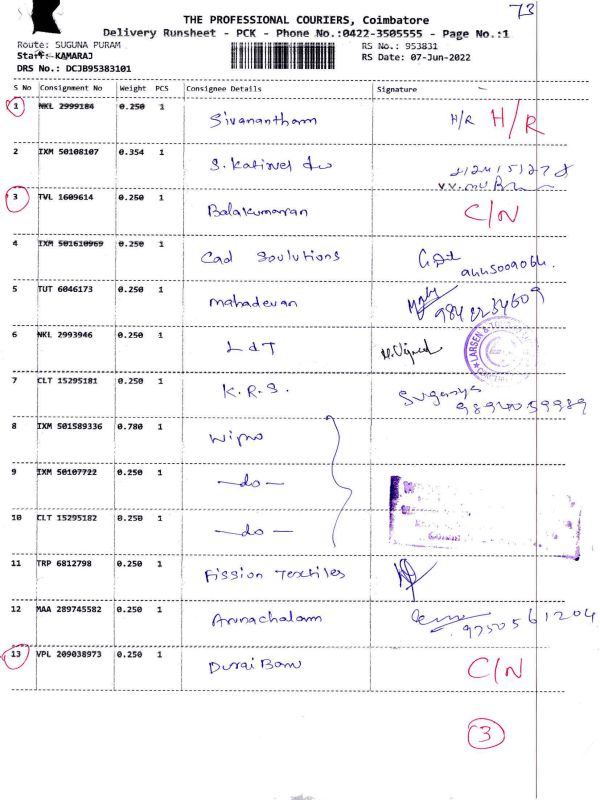 73
THE PROFESSIONAL COURIERS, Coimbatore
Delivery Runsheet - PCK - Phone No.:0422-3505555 - Page No.:1
Route: SUGUNA PURAM RS No.: 953831
Staff: KAMARAJ RS Date: 07-Jun-2022
DRS No.: DCJB95383101
S No Consignment No Weight PCS Consignee Details Signature
1 NKL 2999184 0.250 1 Sivanantham H/R H/R
2 IXM 50108107 0.354 1 S.
3 TVL 1609614 0.250 1 Balakumaran C/N
4 IXM 501610969 0.250 1 Cad Soulutions
5 TUT 6046173 0.250 1 Mahadevan 9842234609
6 NKL 2993946 0.250 1 L&T LARSEN &
7 CLT 15295181 0.250 1 K.R.S. Suganya
9894059989
8 IXM 501589336 0.780 1 Wipro
9 IXM 50107722 0.250 1 -do-
10 CLT 15295182 0.250 1 -do-
11 TRP 6812798 0.250 1 Fission Textiles
12 MAA 289745582 0.250 1 Arunachalam
9750561204
13 VPL 209038973 0.250 1 Durai Banu C/N
3